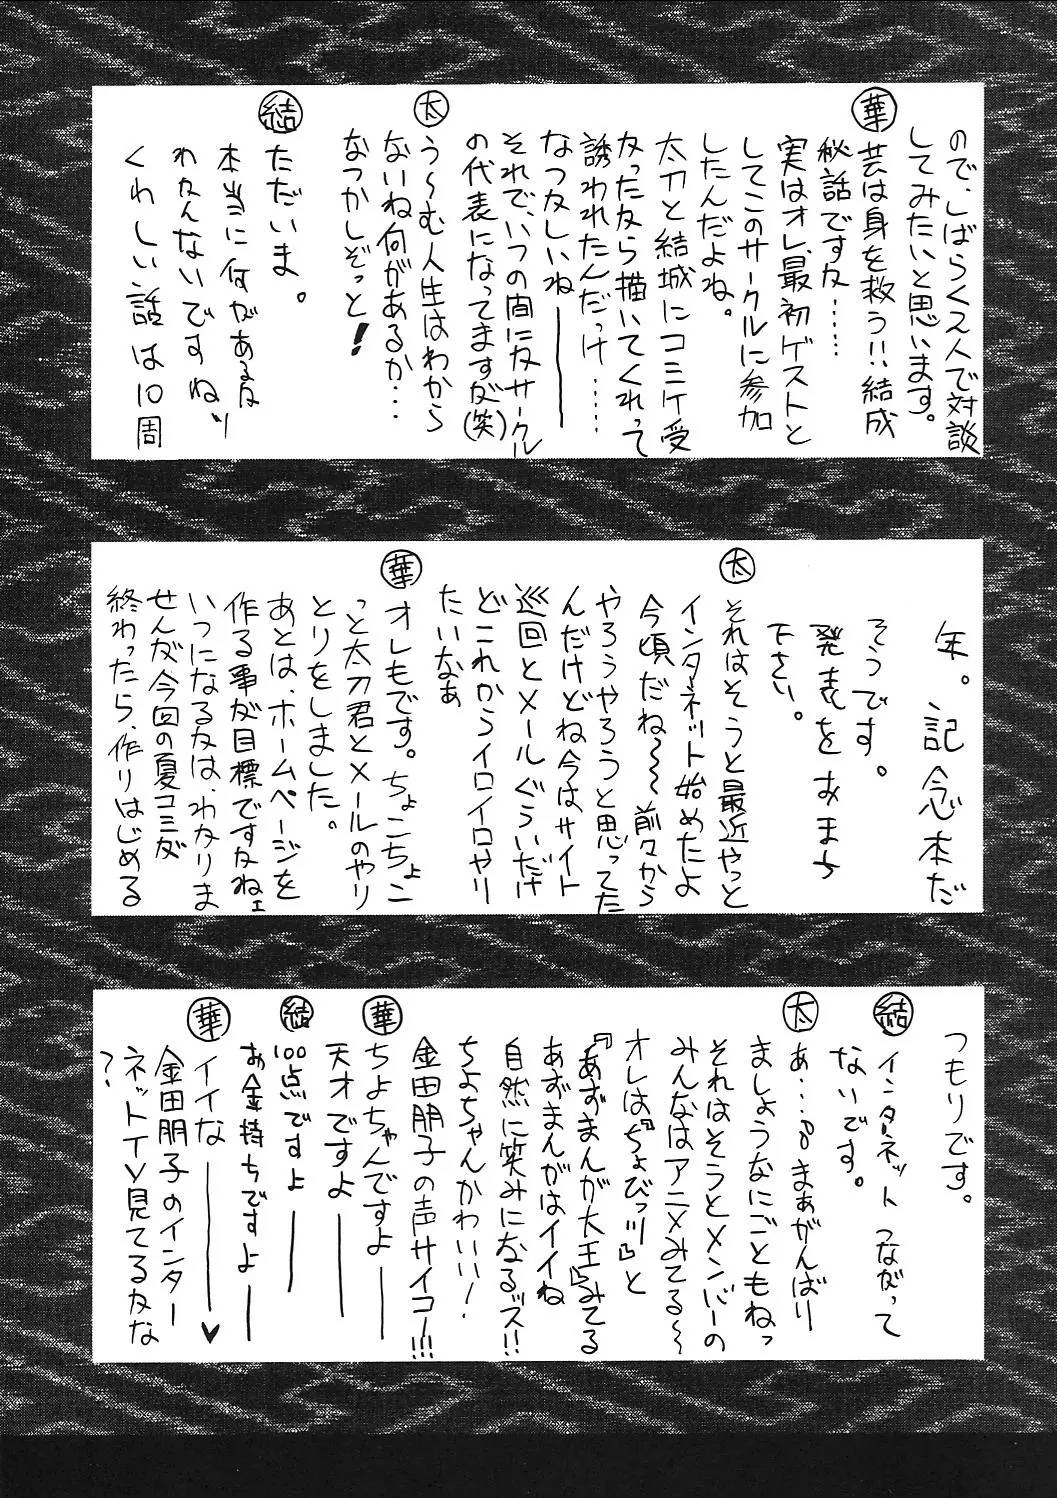 ので、しばらく2人で対談
してみたいと思います。
華
芸は身を救う!!結成
秘話ですな……
実はオレ、最初ゲストと
してこのサークルに参加
したんだよね。
太刀と結城にコミケ受
かったから描いてくれって
誘われたんだっけ……
なつかしいね――
それで、いつの間にかサークル
の代表になってますが(笑)
太
う~む人生はわから
ないね何があるか…
なつかしぞっと!
結
ただいま。
本当に何があるか
わかんないですね
くわしい話は10周
年。記念本だ
そうです。
発表をおまち
下さい。
太
それはそうと最近やっと
インターネット始めたよ
今頃だね~~前々から
やろうやろうと思ってた
んだけどね今はサイト
巡回とメールぐらいだけ
どこれからイロイロやり
たいなぁ
華
オレもです。ちょこちょこ
っと太刀君とメールのやり
とりをしました。
あとは、ホームページを
作る事が目標ですかねェ
いつになるかは、わかりま
せんが今回の夏コミが
終わったら、作りはじめる
つもりです。
結
インターネットつながって
ないです。
太
あ…。まぁがんばり
ましょうなにごともねっ
それはそうとメンバーの
みんなはアニメみてる~
オレは『ちょびっツ』と
『あずまんが大王』みてる
あずまんがはイイね
自然に笑みになるッス!!
ちよちゃんかわいい!
金田朋子の声サイコー!!!
華
ちよちゃんですよ――
天才ですよ――
結
100点ですよ――
お金持ちですよ――
華
イイな――♥
金田朋子のインター
ネットTV見てるかな
?